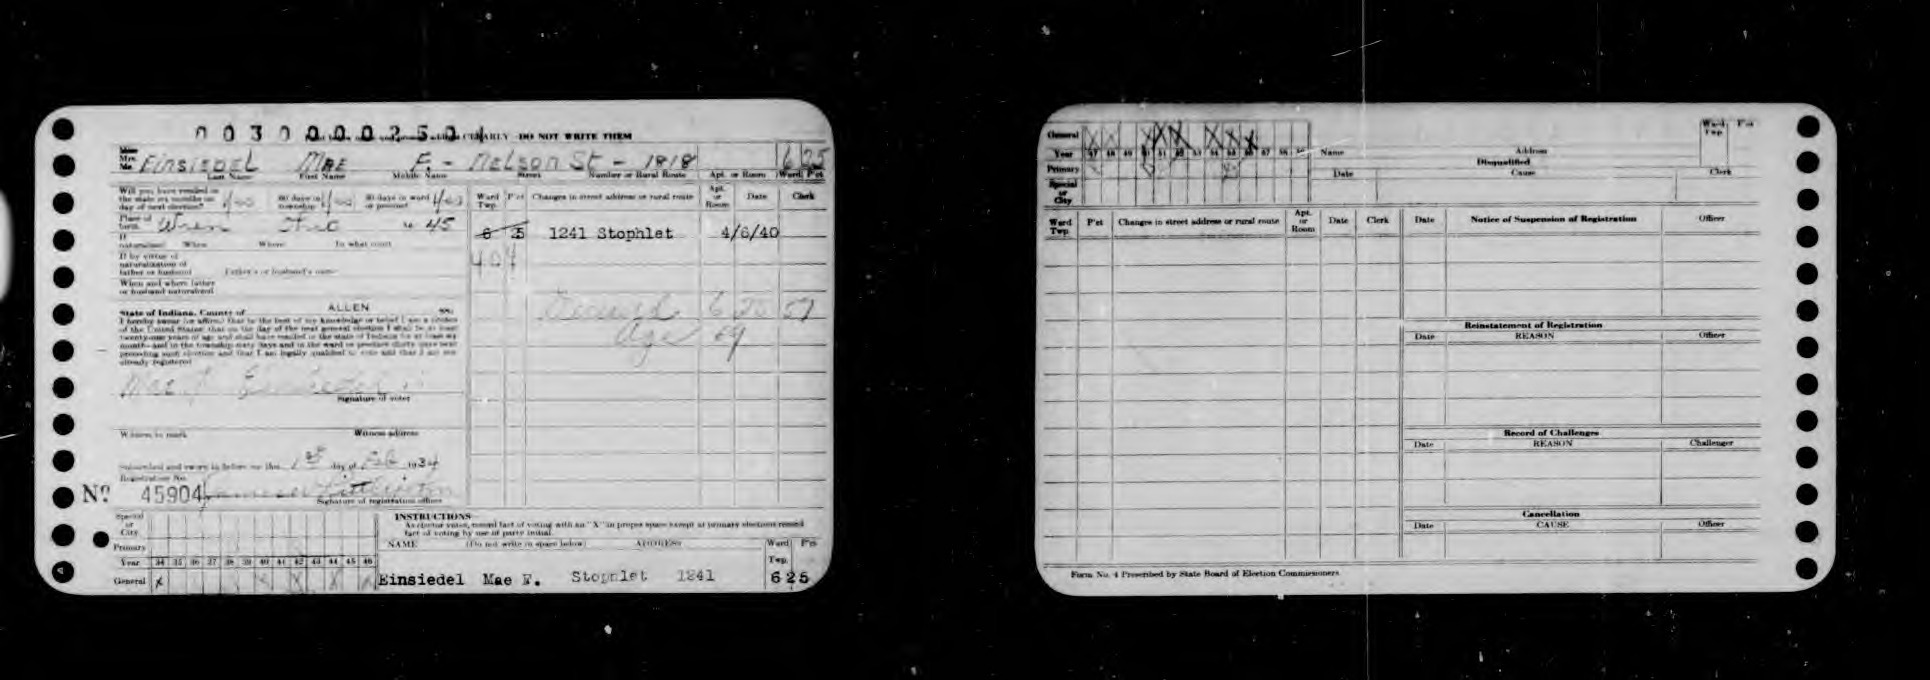 0030000250
CLEARLY - DO NOT WRITE THEM
Mrs. EINSIEDEL MAE F. - NELSON ST - 1818 6 25
Last Name First Name Middle Name Street Number or Rural Route Apt. or Room Ward P'ct
Will you have resided in the state six months on day of next election? yes 60 days in township yes 30 days in ward or precinct yes
Ward Twp. P'ct Changes in street address or rural route Apt. or Room Date Clerk
Place of birth Wren 45
6 25 1241 Stophlet 4/6/40
If naturalized When Where In what court
404
If by virtue of naturalization of father or husband Father's or husband's name
When and where father or husband naturalized
Deceased 6 20 57
Age 69
State of Indiana, County of ALLEN SS:
I hereby swear (or affirm) that to the best of my knowledge or belief I am a citizen
of the United States; that on the day of the next general election I shall be at least
twenty-one years of age and shall have resided in the state of Indiana for at least six
months and in the township sixty days and in the ward or precinct thirty days next
preceding such election and that I am legally qualified to vote and that I am not
already registered
Mae F. Einsiedel
Signature of voter
Witness to mark Witness address
Subscribed and sworn to before me this 1st day of Feb 1934
Registration No.
No 45904
Signature of registration officer
Special or City
Primary
Year 34 35 36 37 38 39 40 41 42 43 44 45 46
General X X X X X X
INSTRUCTIONS
As elector votes, record fact of voting with an "X" in proper space except at primary elections record
fact of voting by use of party initial.
NAME (Do not write in space below) ADDRESS Ward Twp. P'ct
Einsiedel Mae F. Stophlet 1241 6 25
General X X X X X X X X
Year 47 48 49 50 51 52 53 54 55 56 57 58 59
Primary
Special or City
Name Address Ward Twp. P'ct
Disqualified
Date Cause Clerk
Ward Twp. P'ct Changes in street address or rural route Apt. or Room Date Clerk
Date Notice of Suspension of Registration Officer
Reinstatement of Registration
Date REASON Officer
Record of Challenges
Date REASON Challenger
Cancellation
Date CAUSE Officer
Form No. 4 Prescribed by State Board of Election Commissioners